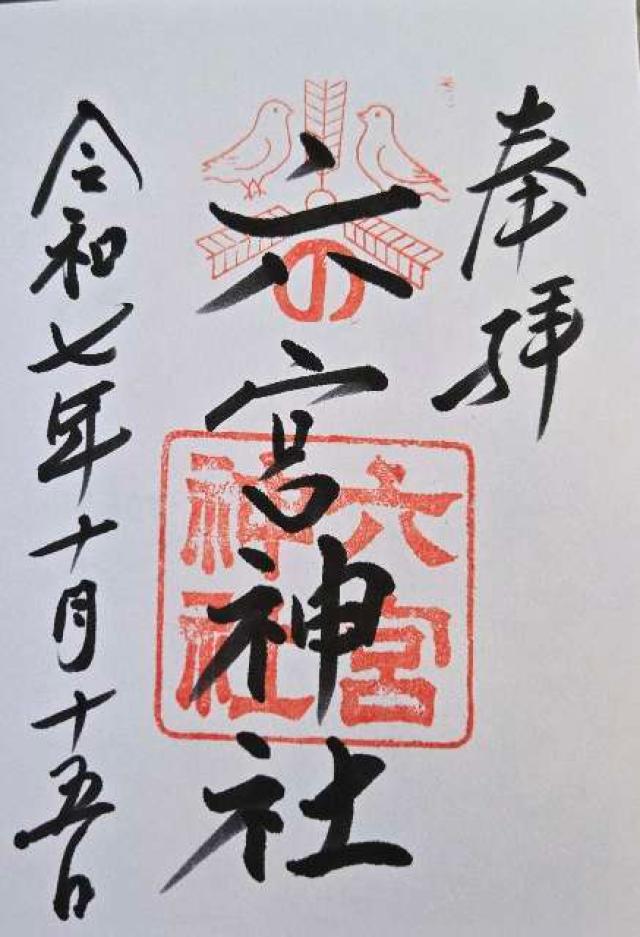 奉拝
六宮神社
の
六宮
神社
令和七年十月十五日